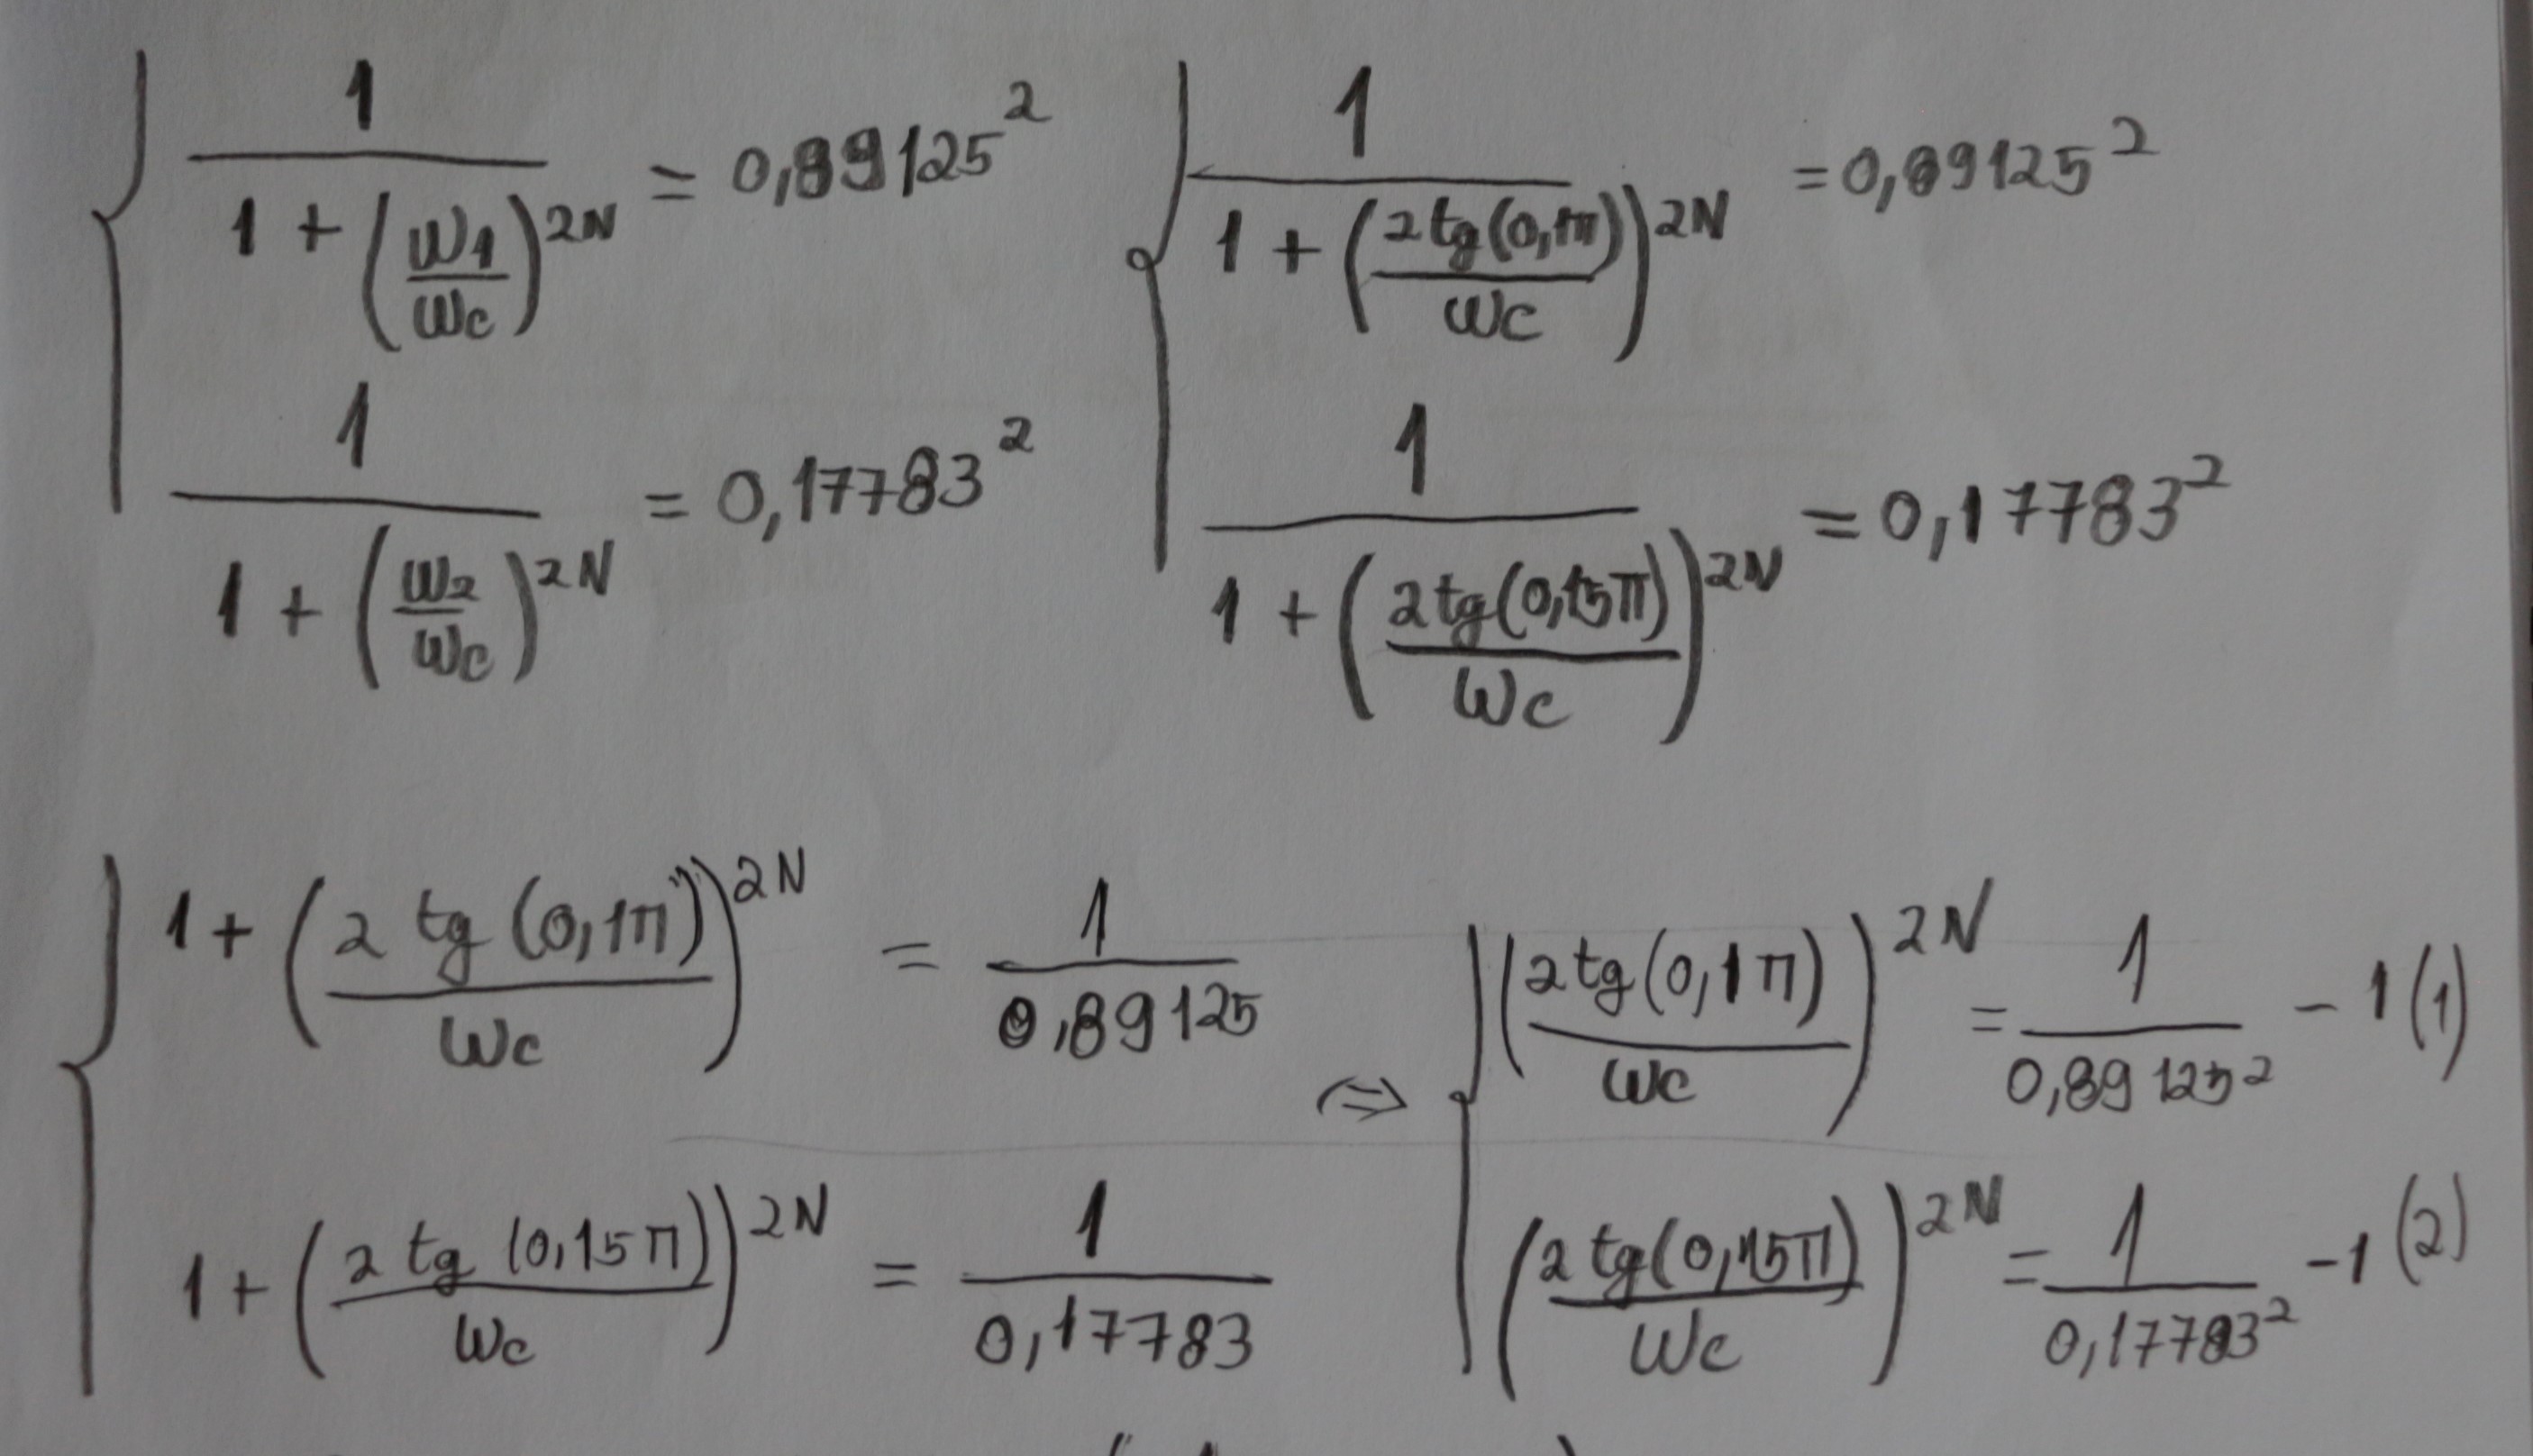 1/(1 + (ω1/ωc)^2N) = 0,89125^2
1/(1 + (ω2/ωc)^2N) = 0,17783^2
1/(1 + (2tg(0,1π)/ωc)^2N) = 0,89125^2
1/(1 + (2tg(0,15π)/ωc)^2N) = 0,17783^2
1 + (2 tg (0,1π)/ωc)^2N = 1/0,89125
1 + (2 tg (0,15π)/ωc)^2N = 1/0,17783
⇔ (2tg(0,1π)/ωc)^2N = 1/0,89125^2 - 1 (1)
(2tg(0,15π)/ωc)^2N = 1/0,17783^2 - 1 (2)